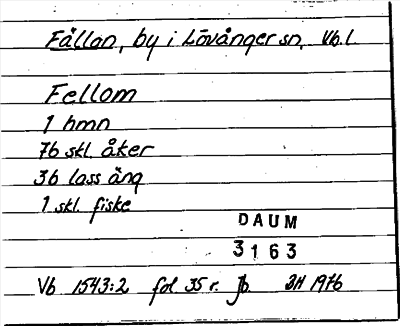 Fållan, by i Lövånger sn, Vb.l.
Fellom
1 hmn
76 skl. åker
36 lass äng
1 skl. fiske
DAUM
3163
Vb 1543:2 fol 35 r. Jb. BH 1976